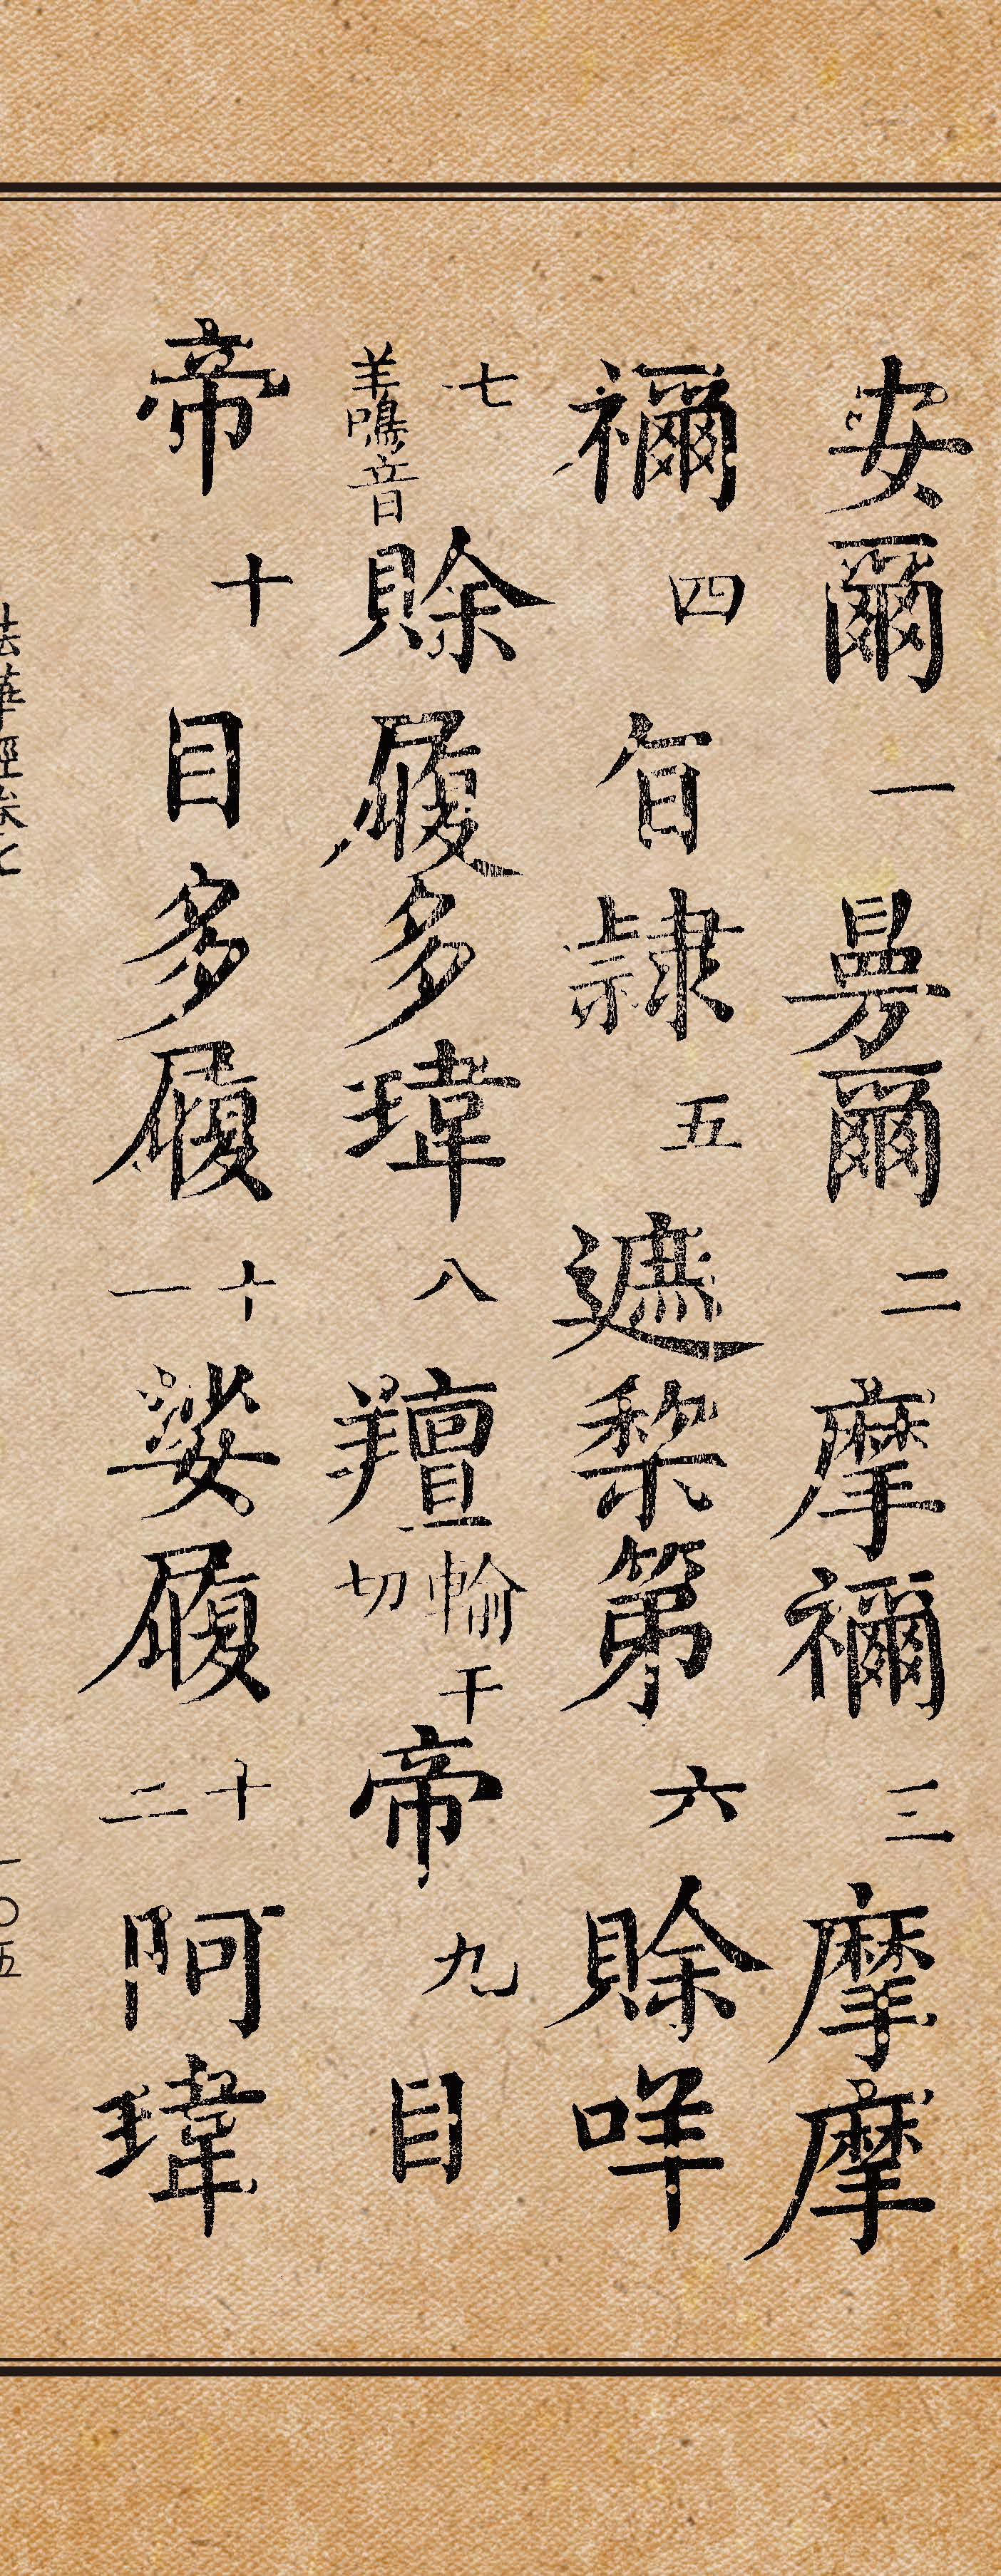 安爾一曼爾二摩禰三摩摩
禰四旨隸五遮棃第六賒咩
七羊鳴音賒履多瑋八羶輸干切帝九目
帝十目多履十一娑履十二阿瑋
法華經卷七
一〇五